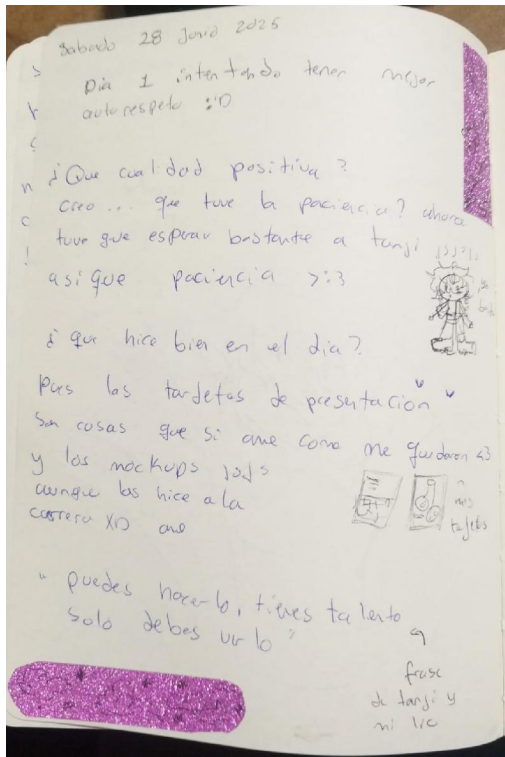 Sabado 28 Junio 2025
Dia 1 intentando tener mejor
autorespeto :'D
¿Que cualidad positiva?
Creo... que tuve la paciencia? ahora
tuve que esperar bastante a tanji jsjsjs
asi que paciencia >:3
¿que hice bien en el dia?
Pues las tarjetas de presentación
Son cosas que si ame como me quedaron <3
y los mockups jsjs
aunque las hice a la
carrera XD
mis
"puedes hacerlo, tienes talento
solo debes verlo"
frase
de tanji y
mi lic